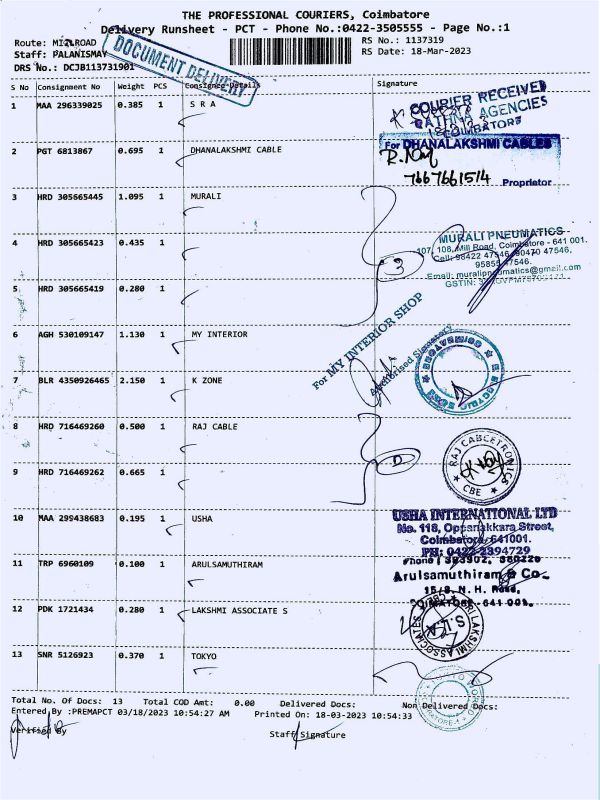 THE PROFESSIONAL COURIERS, Coimbatore
Delivery Runsheet - PCT - Phone No.:0422-3505555 - Page No.:1
Route: MILLROAD
RS No.: 1137319
Staff: PALANISMAY
RS Date: 18-Mar-2023
DRS No.: DCJB113731901
DOCUMENT DELIVERY
S No Consignment No Weight PCS Consignee Details Signature
1 MAA 296339025 0.385 1 S R A
COURIER RECEIVED
RATHNA AGENCIES
COIMBATORE
2 PGT 6813867 0.695 1 DHANALAKSHMI CABLE
For DHANALAKSHMI CABLES
7667661514
Proprietor
3 HRD 305665445 1.095 1 MURALI
4 HRD 305665423 0.435 1
3
MURALI PNEUMATICS
107, 108, Mill Road, Coimbatore - 641 001.
Cell: 98422 47546, 90470 47546,
95855 47546.
Email: muralipneumatics@gmail.com
GSTIN:
5 HRD 305665419 0.280 1
6 AGH 530109147 1.130 1 MY INTERIOR
For MY INTERIOR SHOP
Authorised Signatory
7 BLR 4350926465 2.150 1 K ZONE
8 HRD 716469260 0.500 1 RAJ CABLE
RAJ CABCETRONICS
CBE
9 HRD 716469262 0.665 1
10 MAA 299438683 0.195 1 USHA
USHA INTERNATIONAL LTD
No. 116, Oppanakkara Street,
Coimbatore-641001.
PH: 0422-2394729
11 TRP 6960109 0.100 1 ARULSAMUTHIRAM
Phone : 393902, 380220
Arulsamuthiram & Co.
15/3, N. H. Road,
COIMATORE - 641 001.
12 PDK 1721434 0.280 1 LAKSHMI ASSOCIATE S
SRI LAKSHMI ASSOCIATES
S.L.A
13 SNR 5126923 0.370 1 TOKYO
Total No. Of Docs: 13 Total COD Amt: 0.00 Delivered Docs: Non Delivered Docs:
Entered By :PREMAPCT 03/18/2023 10:54:27 AM Printed On: 18-03-2023 10:54:33
Verified By
Staff Signature